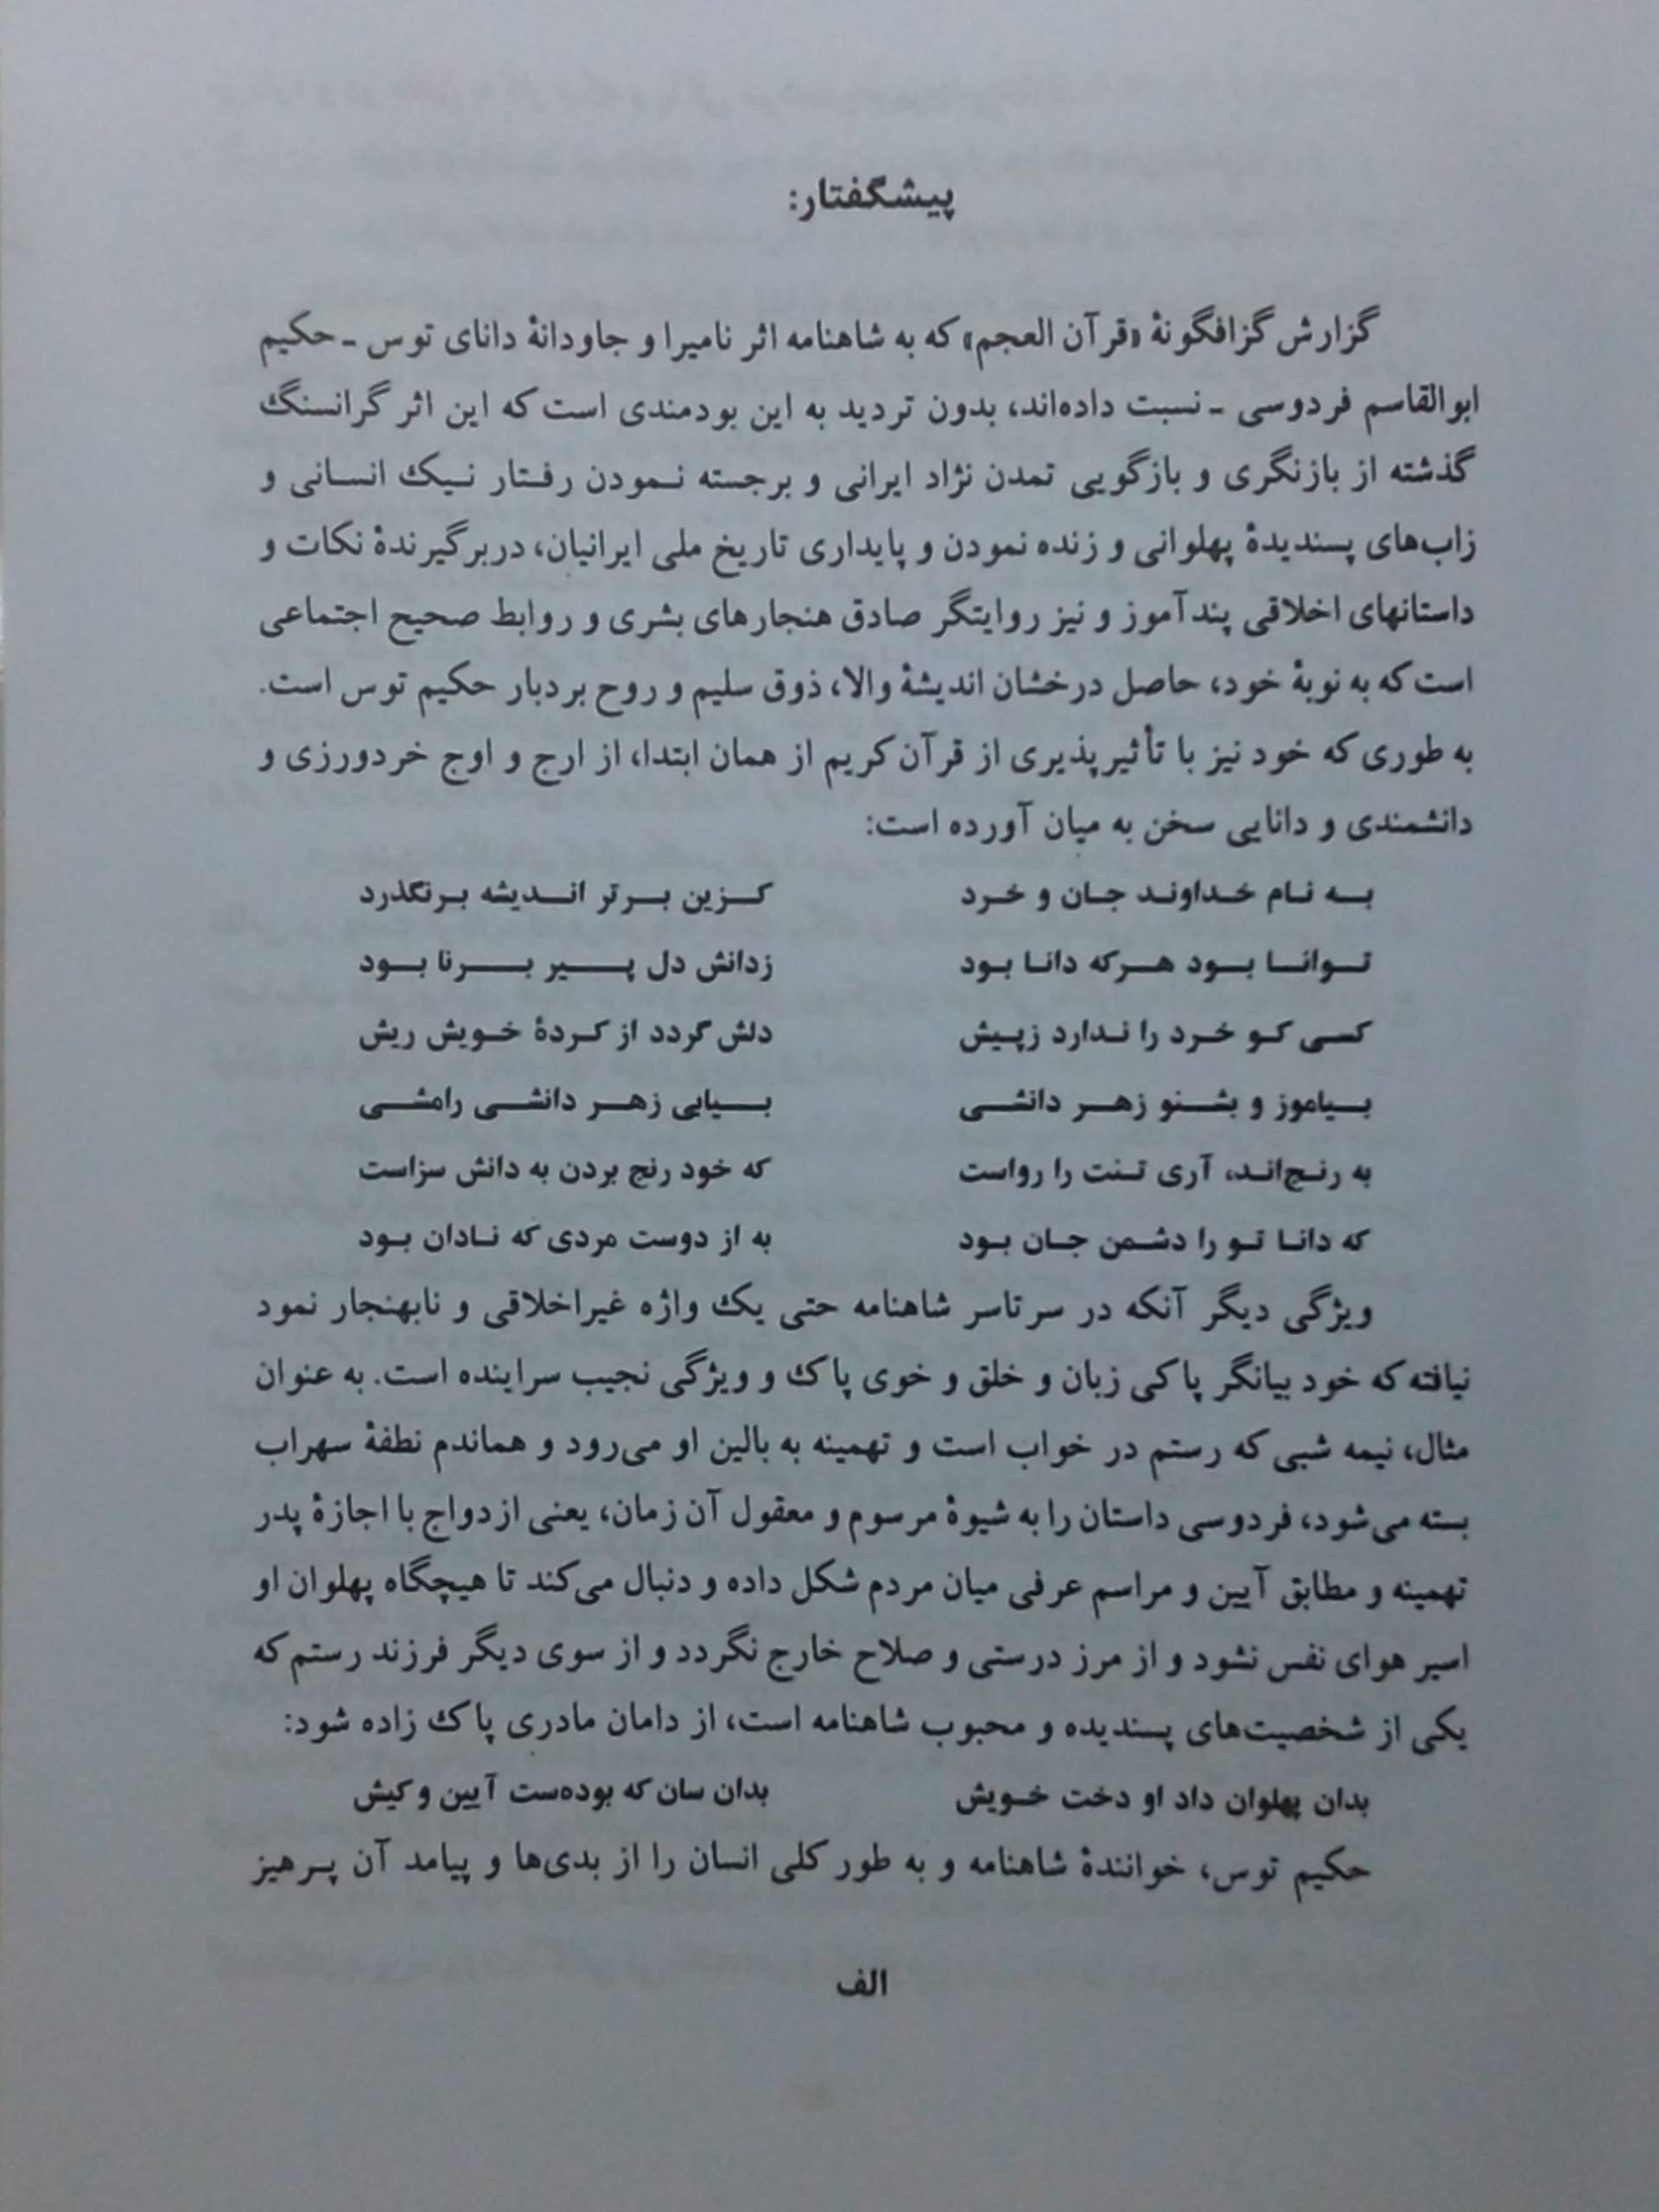 پیشگفتار:
گزارش گزافگونهٔ «قرآن العجم» که به شاهنامه اثر نامیرا و جاودانهٔ دانای توس ـ حکیم
ابوالقاسم فردوسی ـ نسبت داده‌اند، بدون تردید به این بودمندی است که این اثر گرانسنگ
گذشته از بازنگری و بازگویی تمدن نژاد ایرانی و برجسته نمودن رفتار نیک انسانی و
زاب‌های پسندیدهٔ پهلوانی و زنده نمودن و پایداری تاریخ ملی ایرانیان، دربرگیرندهٔ نکات و
داستانهای اخلاقی پندآموز و نیز روایتگر صادق هنجارهای بشری و روابط صحیح اجتماعی
است که به نوبهٔ خود، حاصل درخشان اندیشهٔ والا، ذوق سلیم و روح بردبار حکیم توس است.
به طوری که خود نیز با تأثیرپذیری از قرآن کریم از همان ابتدا، از ارج و اوج خردورزی و
دانشمندی و دانایی سخن به میان آورده است:
به نام خداوند جان و خرد کزین برتر اندیشه برنگذرد
توانا بود هرکه دانا بود زدانش دل پیر برنا بود
کسی کو خرد را ندارد زپیش دلش گردد از کردهٔ خویش ریش
بیاموز و بشنو زهر دانشی بیابی زهر دانشی رامشی
به رنج‌اند، آری تنت را رواست که خود رنج بردن به دانش سزاست
که دانا تو را دشمن جان بود به از دوست مردی که نادان بود
ویژگی دیگر آنکه در سرتاسر شاهنامه حتی یک واژه غیراخلاقی و نابهنجار نمود
نیافته که خود بیانگر پاکی زبان و خلق و خوی پاک و ویژگی نجیب سراینده است. به عنوان
مثال، نیمه شبی که رستم در خواب است و تهمینه به بالین او می‌رود و هماندم نطفهٔ سهراب
بسته می‌شود، فردوسی داستان را به شیوهٔ مرسوم و معقول آن زمان، یعنی ازدواج با اجازهٔ پدر
تهمینه و مطابق آیین و مراسم عرفی میان مردم شکل داده و دنبال می‌کند تا هیچگاه پهلوان او
اسیر هوای نفس نشود و از مرز درستی و صلاح خارج نگردد و از سوی دیگر فرزند رستم که
یکی از شخصیت‌های پسندیده و محبوب شاهنامه است، از دامان مادری پاک زاده شود:
بدان پهلوان داد او دخت خویش بدان سان که بوده‌ست آیین و کیش
حکیم توس، خوانندهٔ شاهنامه و به طور کلی انسان را از بدی‌ها و پیامد آن پرهیز
الف